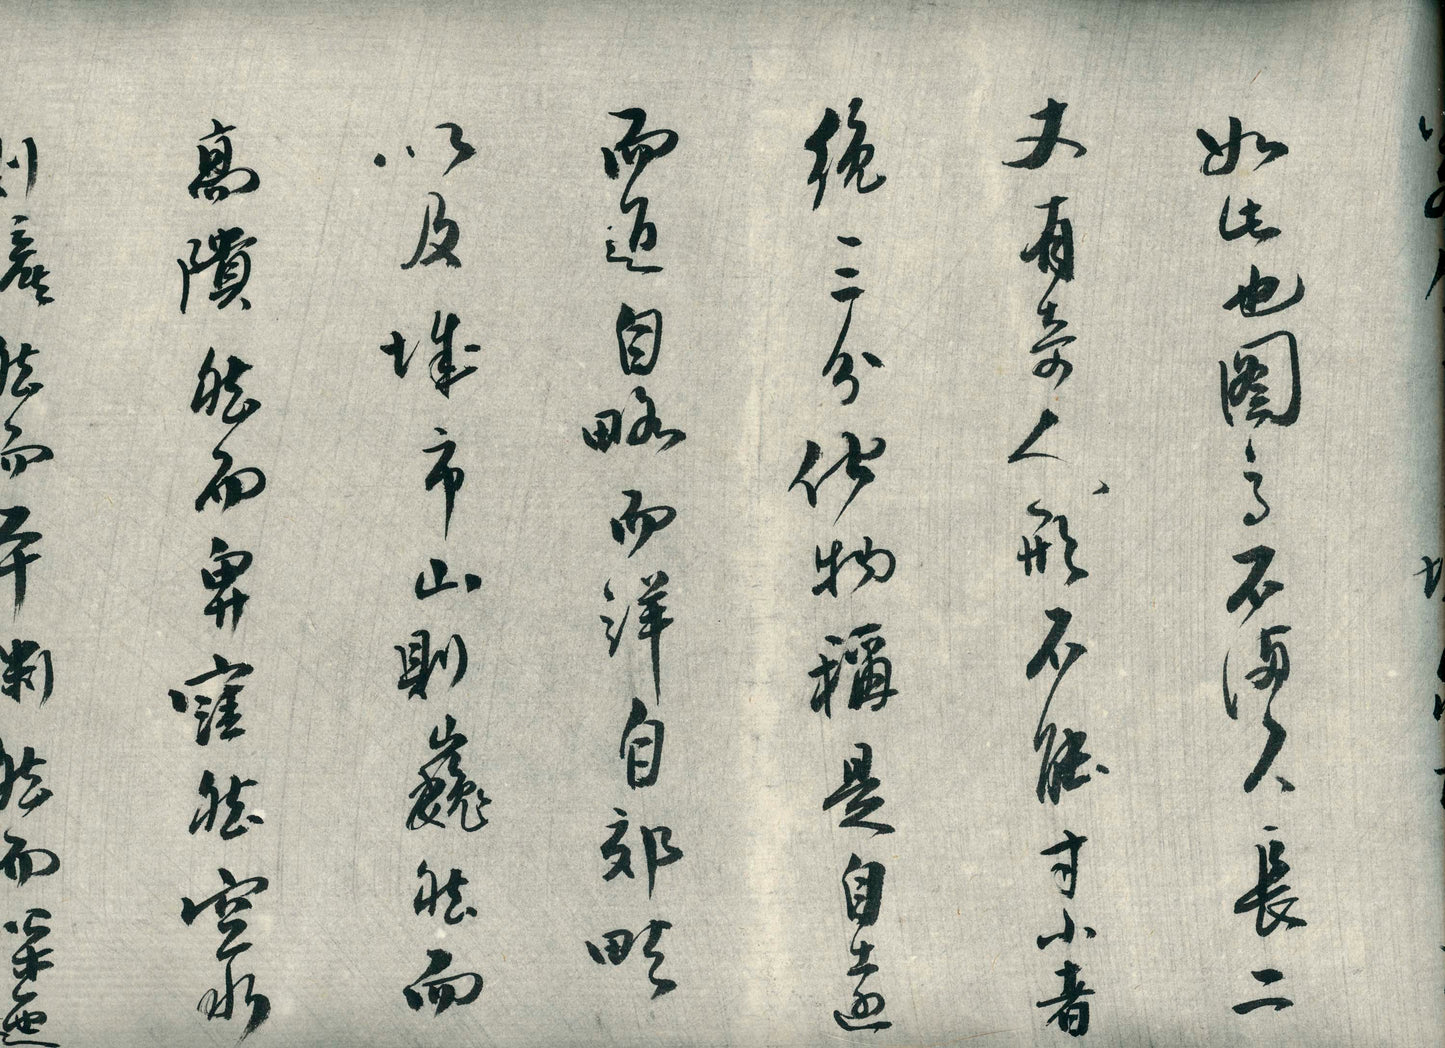 如此也圖高不滿尺長二
丈有奇人形不能寸小者
纔二三分他物稱是自遠
而近自略而詳自郊畎
以及城市山則巍然而
高隤然而卑窪然空水
則 然而平 然而 迤